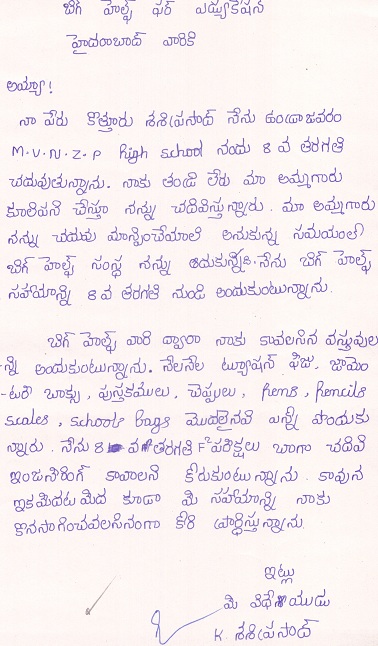 బిగ్ హెల్ప్ ఫర్ ఎడ్యుకేషన
హైదరాబాద్ వారికి
అయ్యా!
నా పేరు కొత్తూరు శశిప్రసాద్ నేను ఉండ్రాజవరం
M.V.N.Z.P High school నందు 8 వ తరగతి
చదువుతున్నాను. నాకు తండ్రి లేరు మా అమ్మగారు
కూలిపని చేస్తూ నన్ను చదివిస్తున్నారు. మా అమ్మగారు
నన్ను చదువు మాన్పించేయాలి అనుకున్న సమయంలో
బిగ్ హెల్ప్ సంస్థ నన్ను ఆదుకున్నది. నేను బిగ్ హెల్ప్
సహాయాన్ని 8 వ తరగతి నుండి అందుకుంటున్నాను.
బిగ్ హెల్ప్ వారి ద్వారా నాకు కావలసిన వస్తువుల
-న్ని అందుకుంటున్నాను. నేలనేల ట్యూషన్ ఫీజు, జామెం
-టరీ బాక్సు, పుస్తకములు, చెప్పులు, pens, pencils
scales, schools bags మొదలైనవి ఎన్నో పొందుకు
న్నారు. నేను 8 వ తరగతి F² పరీక్షలు బాగా చదివి
ఇంజనీరింగ్ కావాలని కోరుకుంటున్నాను. కావున
ఇకమీదట మీద కూడా మీ సహాయాన్ని నాకు
కొనసాగించవలసినంగా కోరి ప్రార్ధిస్తున్నాను.
ఇట్లు
మీ విధేయుడు
K. శశిప్రసాద్